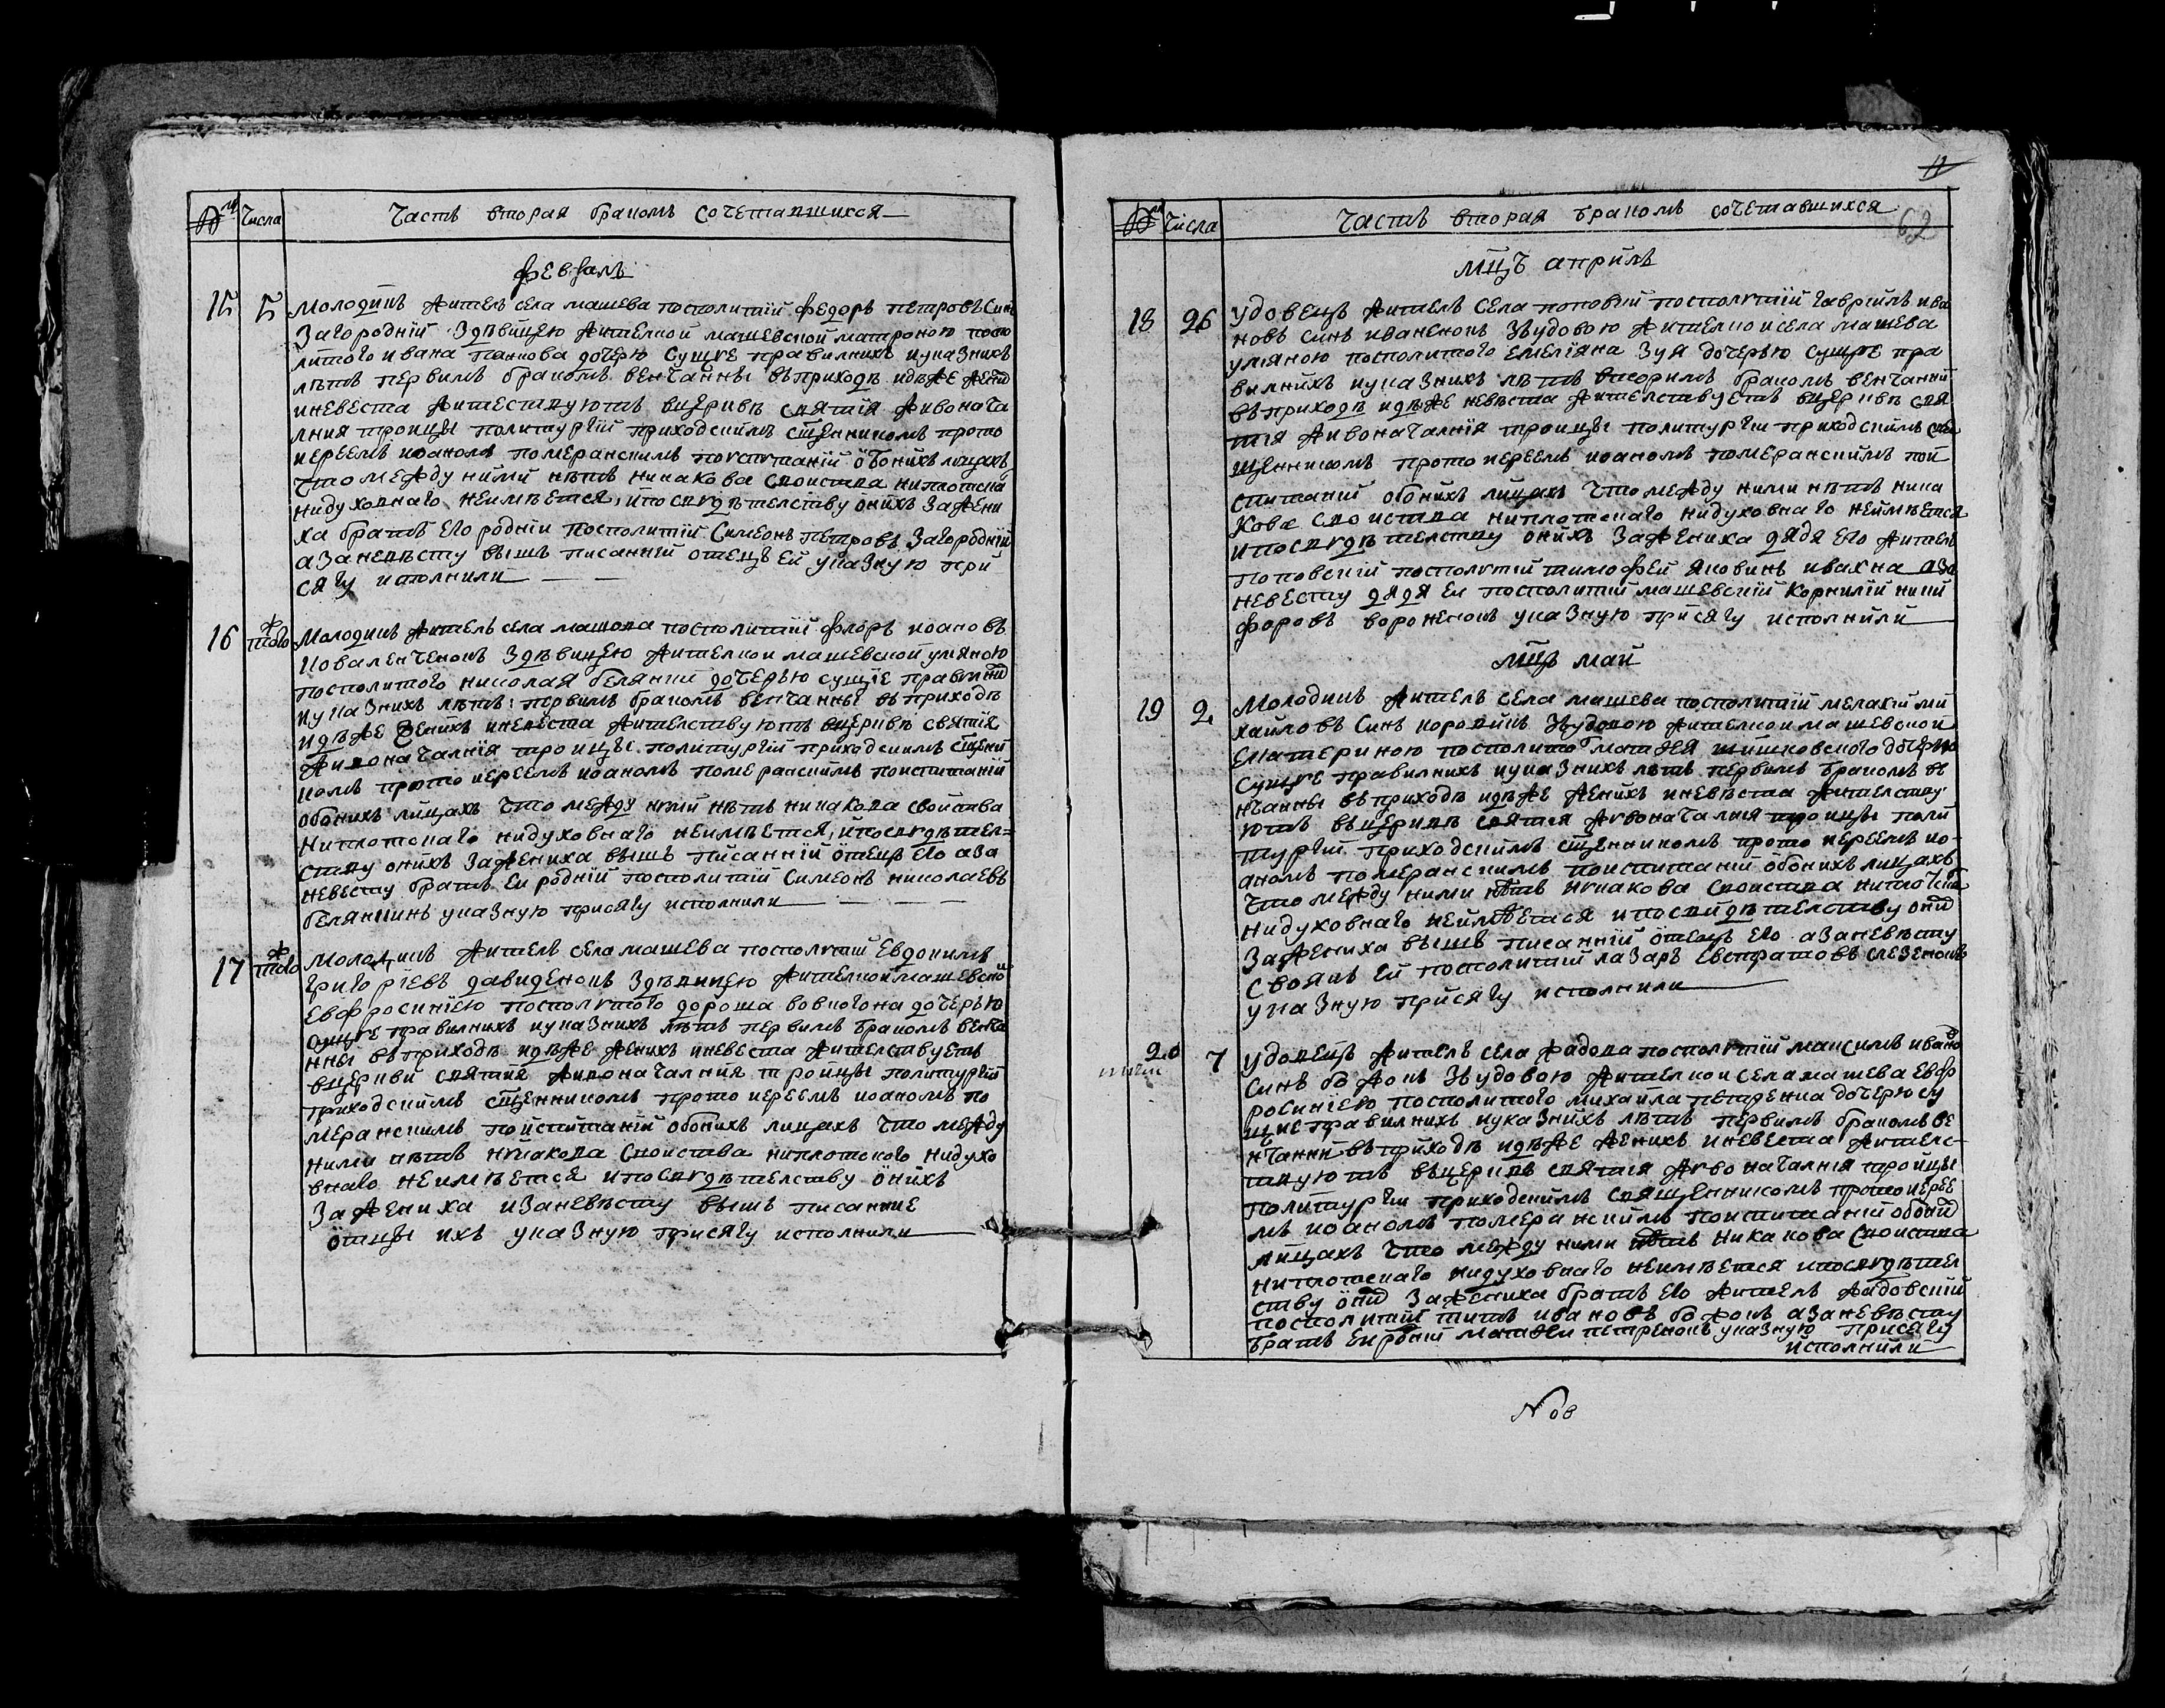 № Числа Часть вторая бракомъ сочетавшихся
Февраль
15 5 Молодикъ житель села машева посполитій федоръ петровъ синъ
загородній здѣвицею жителкой машевской матроною поспо
литого ивана панкова дочерю сущіе правилнихъ иуказнихъ
лѣтъ первимъ бракомъ венчанны въприходѣ идѣже жених
иневеста жителствуютъ вцерквѣ святія живонача
лния троицы политургіи приходскимъ сщенникомъ прото
иереемъ иоаномъ померанскимъ поиспитаніи обоихъ лицахъ
что между ними нѣтъ никакова свойства ниплотска
нидуховнаго неимѣется, ипосвидѣтелству онихъ зажени
ха братъ его родній посполитій Симеонъ петровъ загородній
азаневѣсту вышъ писанній отецъ ей указную при
сягу исполнили
16 того ж Молодикъ житель села машева посполитій флоръ иоановъ
коваленченокъ здѣвицею жителкои машевской уляною
посполитого николая белянки дочерью сущіе правилних
иуказнихъ лѣтъ первимъ бракомъ венчанны въприходѣ
идѣже женихъ иневеста жителствуютъ вцерквѣ святія
живоначалнія троицы политургіи приходскимъ сщенни
комъ протоиереемъ иоаномъ померанскимъ поиспитаніи
обоихъ лицахъ что между ними нѣтъ никакова свойства
ниплотскаго нидуховнаго неимѣется, ипосвидѣтел=
ству онихъ зажениха вышъ писанній отецъ его аза
невесту братъ еи родній посполитій Симеонъ николаевъ
белянкинъ указную присягу исполнили
17 того ж Молодикъ житель села машева посполитій Евдокимъ
григоріевъ давиденокъ здѣвицею жителкой машевской
Евфросиніею посполитого дороша вовкогона дочерью
сущіе правилнихъ иуказнихъ лѣтъ первимъ бракомъ венча
нны въприходѣ идѣже женихъ иневеста жителствуетъ
вцеркви святия живоначалния троицы политургіи
приходскимъ сщенникомъ протоиереемъ иоаномъ по
меранскимъ поиспитаніи обоихъ лицахъ что между
ними нѣтъ никакова свойства ниплотского нидухо
внаго неимѣется ипосвидѣтелству онихъ
зажениха изаневѣсту вышъ писанние
отцы ихъ указную присягу исполнили
11
62
№ Числа Часть вторая бракомъ сочетавшихся
мцъ априль
18 26 Удовецъ житель села поповки посполитій гавріилъ ива
новъ синъ иваненокъ звудовою жителкои села машева
уляною посполитого емеліяна зуя дочерью сущіе пра
вилнихъ иуказнихъ лѣтъ вторимъ бракомъ венчанни
въприходѣ идѣже невѣста жителствуетъ вцерквѣ свя
тія живоначалнія троицы политургіи приходскимъ свя
щенникомъ протоиереемъ иоаномъ померанскимъ пои
спитаніи обоихъ лицахъ что между ними нѣтъ ника
кова свойства ниплотскаго нидуховнаго неимѣется
ипосвидѣтелству онихъ зажениха дядя его житель
поповскій посполитій тимофей яковинъ ивахна аза
невесту дядя ея посполитій машевскій корнилій ники
форовъ вороненокъ указную присягу исполнили
мцъ май
19 2 Молодикъ житель села машева посполитій мелакій ми
хайловъ синъ коропикъ звудовою жителкои машевской
Екатериною посполитого матфея шишковского дочерю
сущіе правилнихъ иуказнихъ лѣтъ первимъ бракомъ ве
нчанны въприходѣ идѣже женихъ иневѣста жителству
ютъ въцерквѣ святія живоначалния троицы поли
тургіи приходскимъ сщенникомъ протоиереемъ ио-
аномъ померанскимъ поиспитаніи обоихъ лицахъ
что между ними нѣтъ никакова свойства ниплотска
нидуховнаго неимѣется ипосвидѣтелству оних
зажениха вышъ писанній отецъ его азаневѣсту
своякъ ей посполитій лазаръ Евстратовъ слезенокъ
указную присягу исполнили
20 7 Удовецъ житель села жадова посполитій максимъ иванов
синъ божокъ звудовою жителкои села машева евф
росиніею посполитого михаила петренка дочерю су
щие правилнихъ иуказнихъ лѣтъ первимъ бракомъ ве
нчанни въприходѣ идѣже женихъ иневеста жителс-
твуютъ въцерквѣ святія живоначалнія тройцы
политургіи приходскимъ священникомъ протоиерее
мъ иоаномъ померанскимъ поиспитаніи обоих
лицахъ что между ними нѣтъ никакова свойства
ниплотскаго нидуховнаго неимѣется ипосвидѣтел
ству оних зажениха братъ его житель жадовскій
посполитій титъ ивановъ божокъ азаневѣсту
братъ еи родній матфеи петренокъ указную присягу
исполнили
Nов